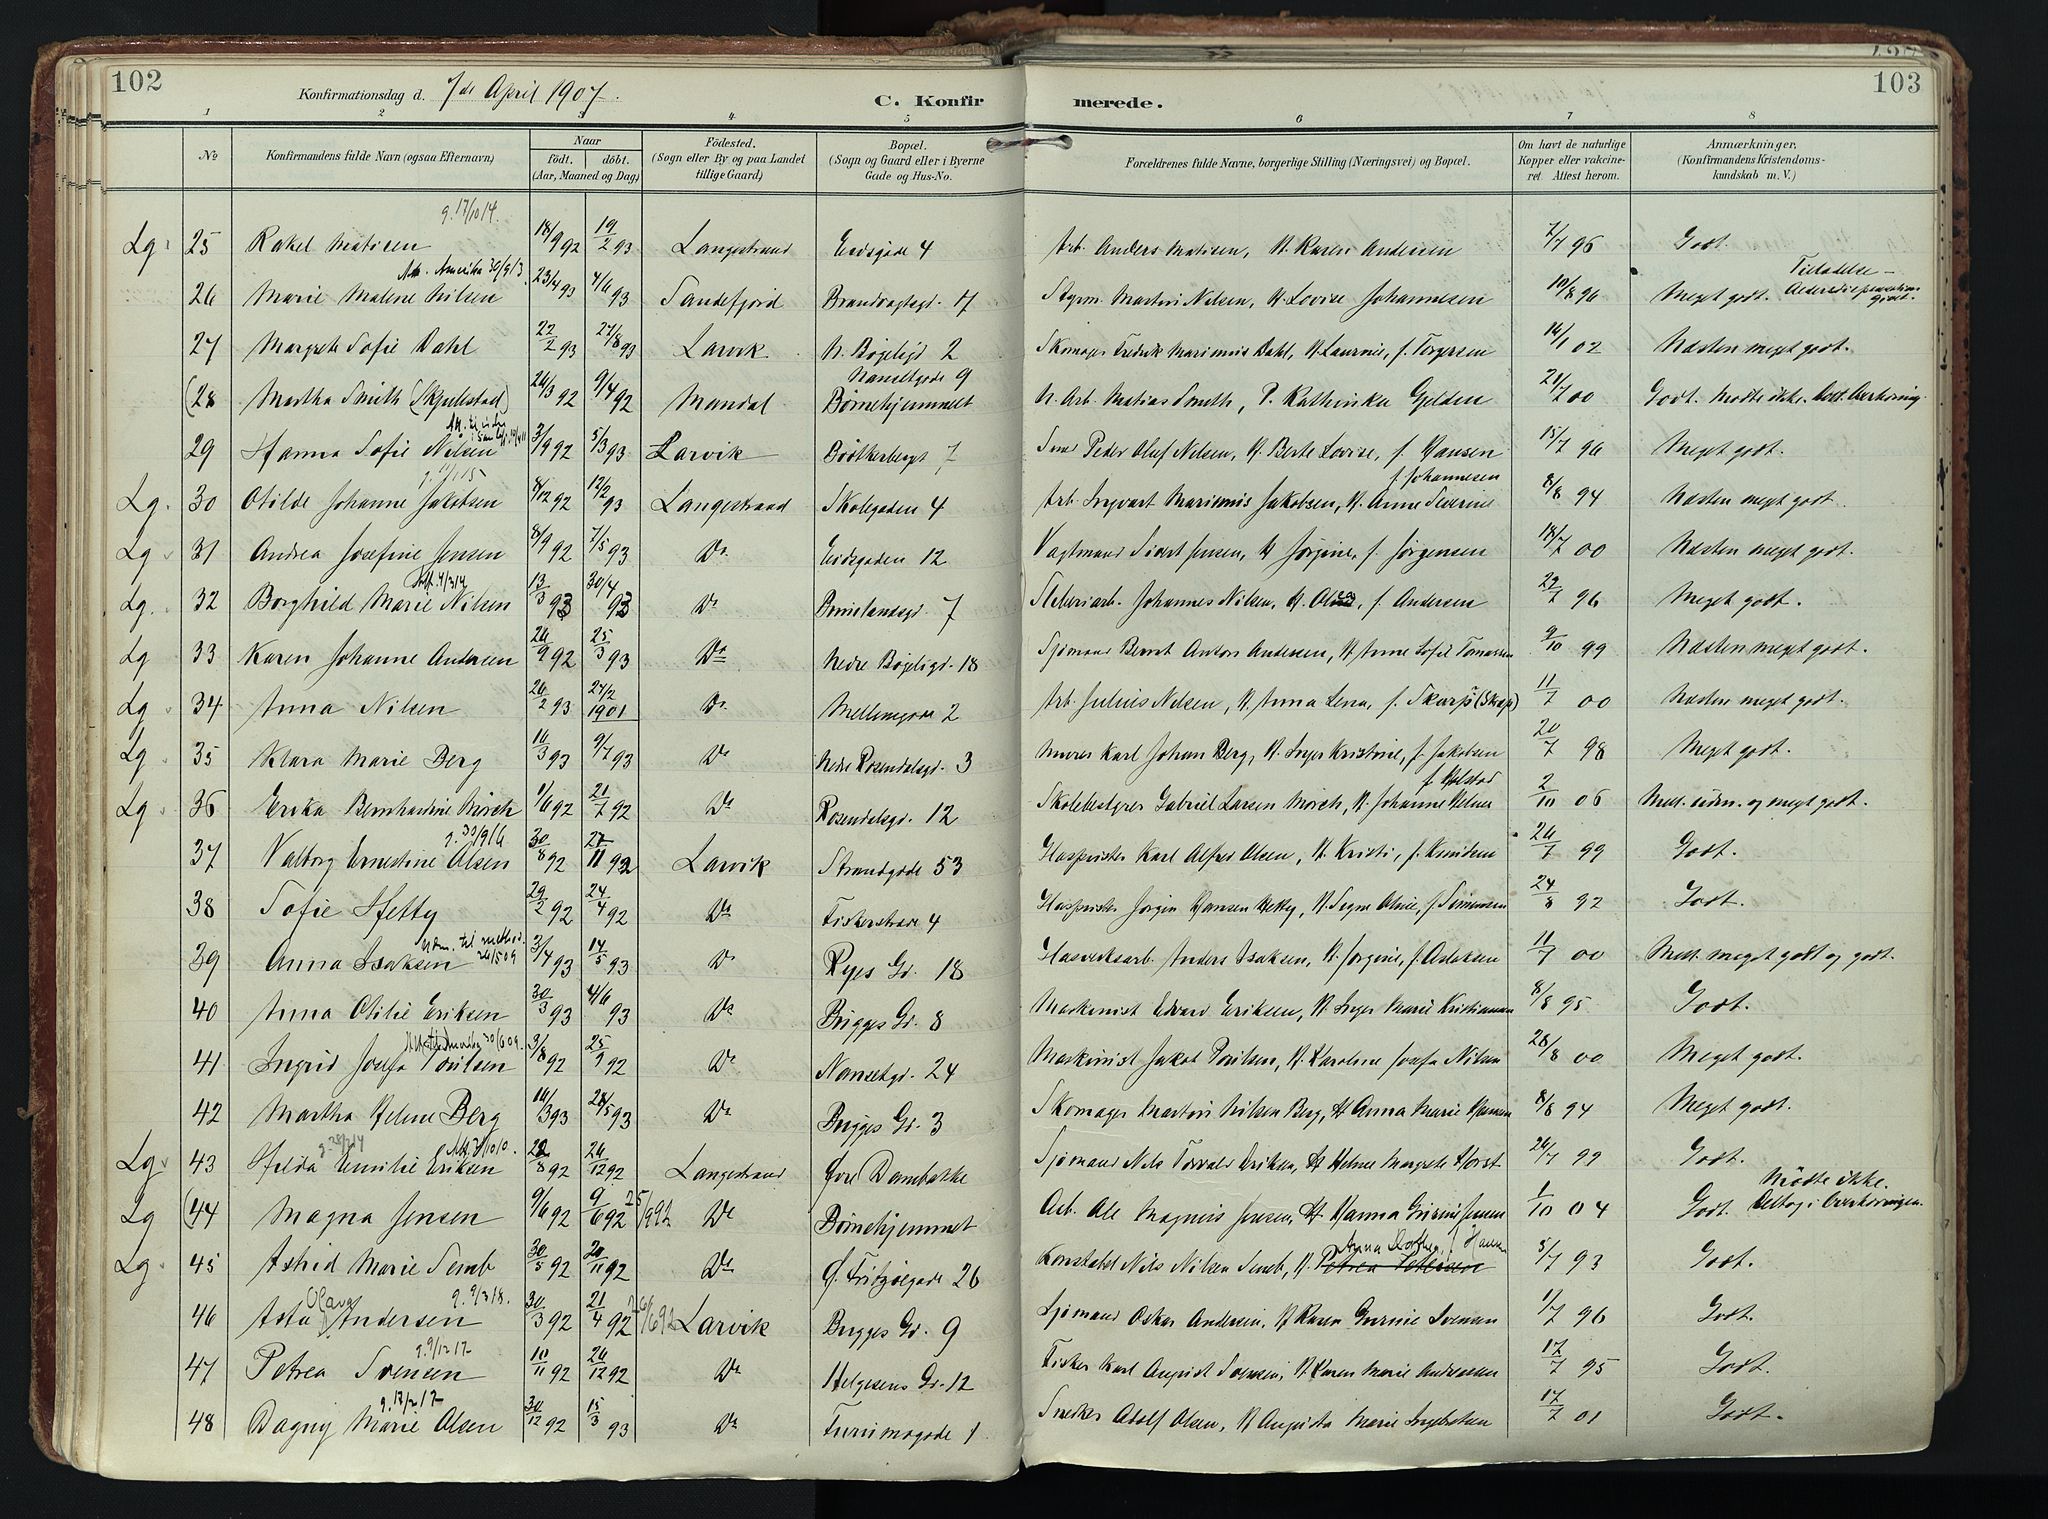 102
Konfirmationsdag d. 7de April 1907.
C. Konfirmerede.
103
1 2 3 4 5 6 7 8
No
Konfirmandens fulde Navn (ogsaa Efternavn)
Naar
født. døbt.
(Aar, Maaned og Dag)
Fødested.
(Sogn eller By og paa Landet
tillige Gaard)
Bopæl.
(Sogn og Gaard eller i Byerne
Gade og Hus-No.
Forældrenes fulde Navne, borgerlige Stilling (Næringsvei) og Bopæl.
Om havt de naturlige
Kopper eller vakcine-
ret Attest herom.
Anmærkninger,
(Konfirmandens Kristendoms-
kundskab m. V.)
g. 17/10 14.
Lg. 25 Rakel Matisen 18/9 92 19/2 93 Langestrand Eidsgade 4 Arb. Anders Matisen, H. Karen Andersen 7/7 96 Godt.
Att. Amerika 30/9 13.
26 Marie Malene Nilsen 23/4 93 4/6 93 Sandefjord Brandvagtsgd. 17 Styrm. Martin Nilsen, H. Lovise Johannesen 10/8 96 Meget godt. Tilladelse - Aldersdispensation givet.
27 Margrete Sofie Dahl 22/2 93 27/8 93 Larvik N. Bøgeligd 2 Skomager Fredrik Marinius Dahl, H. Laurnie, f. Torgersen 14/1 02 Næsten meget godt.
Nansetgade 9
(28 Martha Smith (Skjellstad) 24/3 92 9/4 92 Mandal Børnehjemmet U. Arb. Matias Smith, P. Kathinka Gjelden 21/7 00 Godt. Mødte ikke.
29 Hanna Sofie Nilsen 3/9 92 5/3 93 Larvik Bøkkerberget 7 Smed Peder Oluf Nilsen, H. Berte Lovise, f. Hansen 15/7 96 Meget godt.
g. 11/1 15 f. Johannesen
Lg. 30 Otilde Johanne Jakobsen 4/12 92 12/2 93 Langestrand Skolegaden 4 Arb. Ingvart Marinius Jakobsen, H. Anne Severine 8/8 94 Næsten meget godt.
Lg 31 Andrea Josefine Jensen 8/9 92 7/5 93 Do Eidsgaden 12 Vagtmand Sivert Jensen, H. Jørgine, f. Jørgensen 18/7 00 Næsten meget godt.
Att. 4/3 14
Lg. 32 Borghild Marie Nilsen 13/3 93 30/4 93 Do 7 Sliberiarb. Johannes Nilsen, H. f. Andersen 22/7 96 Meget godt.
Lg 33 Karen Johanne Andersen 24/9 92 25/3 93 Do Nedre Bøgeligd. 18 Sjømand Bernt Anton Andersen, H. Anne Sofie Tomassen 9/10 99 Næsten meget godt.
Lg 34 Anna Nilsen 26/2 93 24/2 1901 Do Mellemgade 2 Arb. Julius Nilsen, H. Anna Lena, f. 11/7 00 Næsten meget godt.
Lg. 35 Klara Marie Berg 16/3 93 9/7 93 Do Nedre Rosendalsgd. 3 Murer Karl Johan Berg, H. Inger Kristine, f. Jakobsen 20/7 98 Meget godt.
Lg. 36 Erika Bernhardine Mørch 11/6 92 21/7 92 Do Rosendalsgd. 12 Skolebestyrer Gabriel Larsen Mørch, H. Johanne Helene 2/10 06 Mell. udm. og meget godt.
g. 30/9 16
37 Valborg Ernestine Olsen 30/8 92 27/11 92 Larvik Strandgade 53 Glaspuster Karl Alfred Olsen, H. Kristi, f. Knudsen 24/7 99 Godt.
38 Sofie Hetty 29/2 92 24/4 92 Do Fiskerstræde 4 Glaspuster Jørgen Hansen Hetty, H. Signe Oline, f. Simensen 24/8 92 Godt.
Udm. til method. 24/5 09
39 Anna Isaksen 3/4 93 14/5 93 Do Ryes Gd. 18 Glasverksarb. Anders Isaksen, H. Jørgine, f. Aslaksen 11/7 00 Mell. meget godt og godt.
40 Anna Otilie Eriksen 30/3 93 4/6 93 Do Brigges Gd. 8 Maskinist Edvard Eriksen, H. Inger Marie Kristiansen 8/8 95 Godt.
41 Ingrid Josefa Poulsen 3/8 92 25/9 92 Do Nansetgd. 24 Maskinist Jakob Poulsen, H. Karoline Josefa Nilsen 28/8 00 Meget godt.
42 Martha Helene Berg 10/3 93 28/5 93 Do Brigges Gd. 3 Skomager Martin Nilsen Berg, H. Anna Marie Hansen 8/8 94 Meget godt.
Lg 43 Hilda Emilie Eriksen 22/8 92 26/12 92 Langestrand Øvre Dambakke Sjømand Nils Torvald Eriksen, H. Helene Margrete Horst 24/7 99 Godt.
Lg (44 Magna Jensen 9/6 92 9/6 92 25/9 92 Do Børnehjemmet Arb. Ole Magnus Jensen, H. Hanna Gurine Jensen 1/10 04 Godt. Mødte ikke. Deltog i Overhøringen.
Lg. 45 Astrid Marie Semb 30/5 92 20/11 92 Do Ø. Fritzøegade 26 Konstabel Nils Nilsen Semb, H. Petrea Petersen 5/7 93 Godt.
g. 9/3 18.
46 Asta Olava Andersen 30/3 92 21/4 92 Larvik Brigges Gd. 9 Sjømand Oskar Andersen, H. Karen Gurine Svensen 11/7 96 Godt.
g. 9/12 17
47 Petrea Svensen 10/11 92 26/12 92 Do Helgesens Gd. 12 Fisker Karl August Svensen, H. Karen Marie Andreassen 17/7 95 Godt.
48 Dagny Marie Olsen 30/12 92 15/3 93 Do Furumogade 1 Snedker Adolf Olsen, H. Augusta Marie Ingebretsen 17/7 01 Godt.